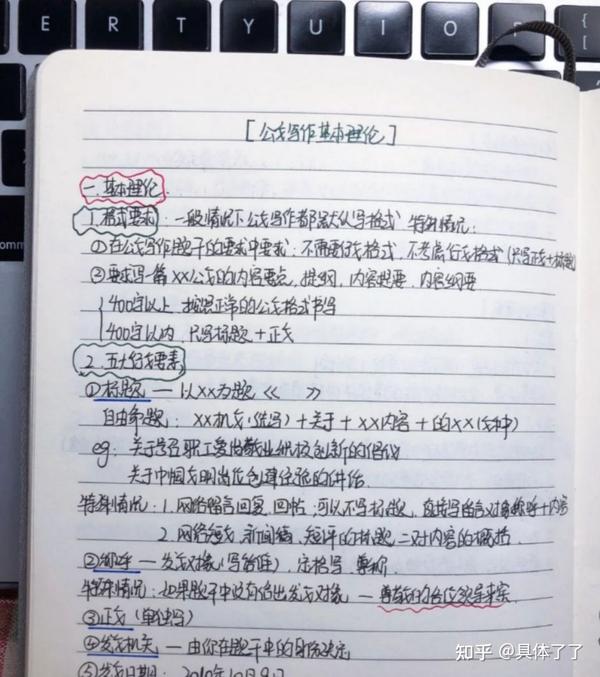 E R T Y U I O P {
[
[公文写作基本理论]
一.基本理论
1.格式要求:一般情况下公文写作都默认写格式 特殊情况:
①在公文写作题干的要求中要求:不需要行文格式,不考虑行文格式(只写正文+标题)
②要求写一篇XX公文的内容要点,提纲,内容提要,内容纲要
400字以上,按照正常的公文格式书写
400字以内,只写标题+正文
2.五大行文要素
①标题—以XX为题《 》
自由命题:XX机关(续写)+关于+XX内容+的XX(文种)
eg:关于号召职工爱岗敬业积极创新的倡议
关于中国文明岗位创建经验的
特殊情况:1.网络留言回复,回帖:可以不写标题,直接写留言对象称呼+内容
2.网络短文,新闻稿,短评的标题二对内容的概括
②称呼—发文对象(写给谁),定格写,尊称
特殊情况:如果题干中没有给出发文对象—尊敬的各位领导来宾
③正文(单独写)
④发文机关—由你在题干中的身份决定
⑤发文日期:
知乎 @具体了了